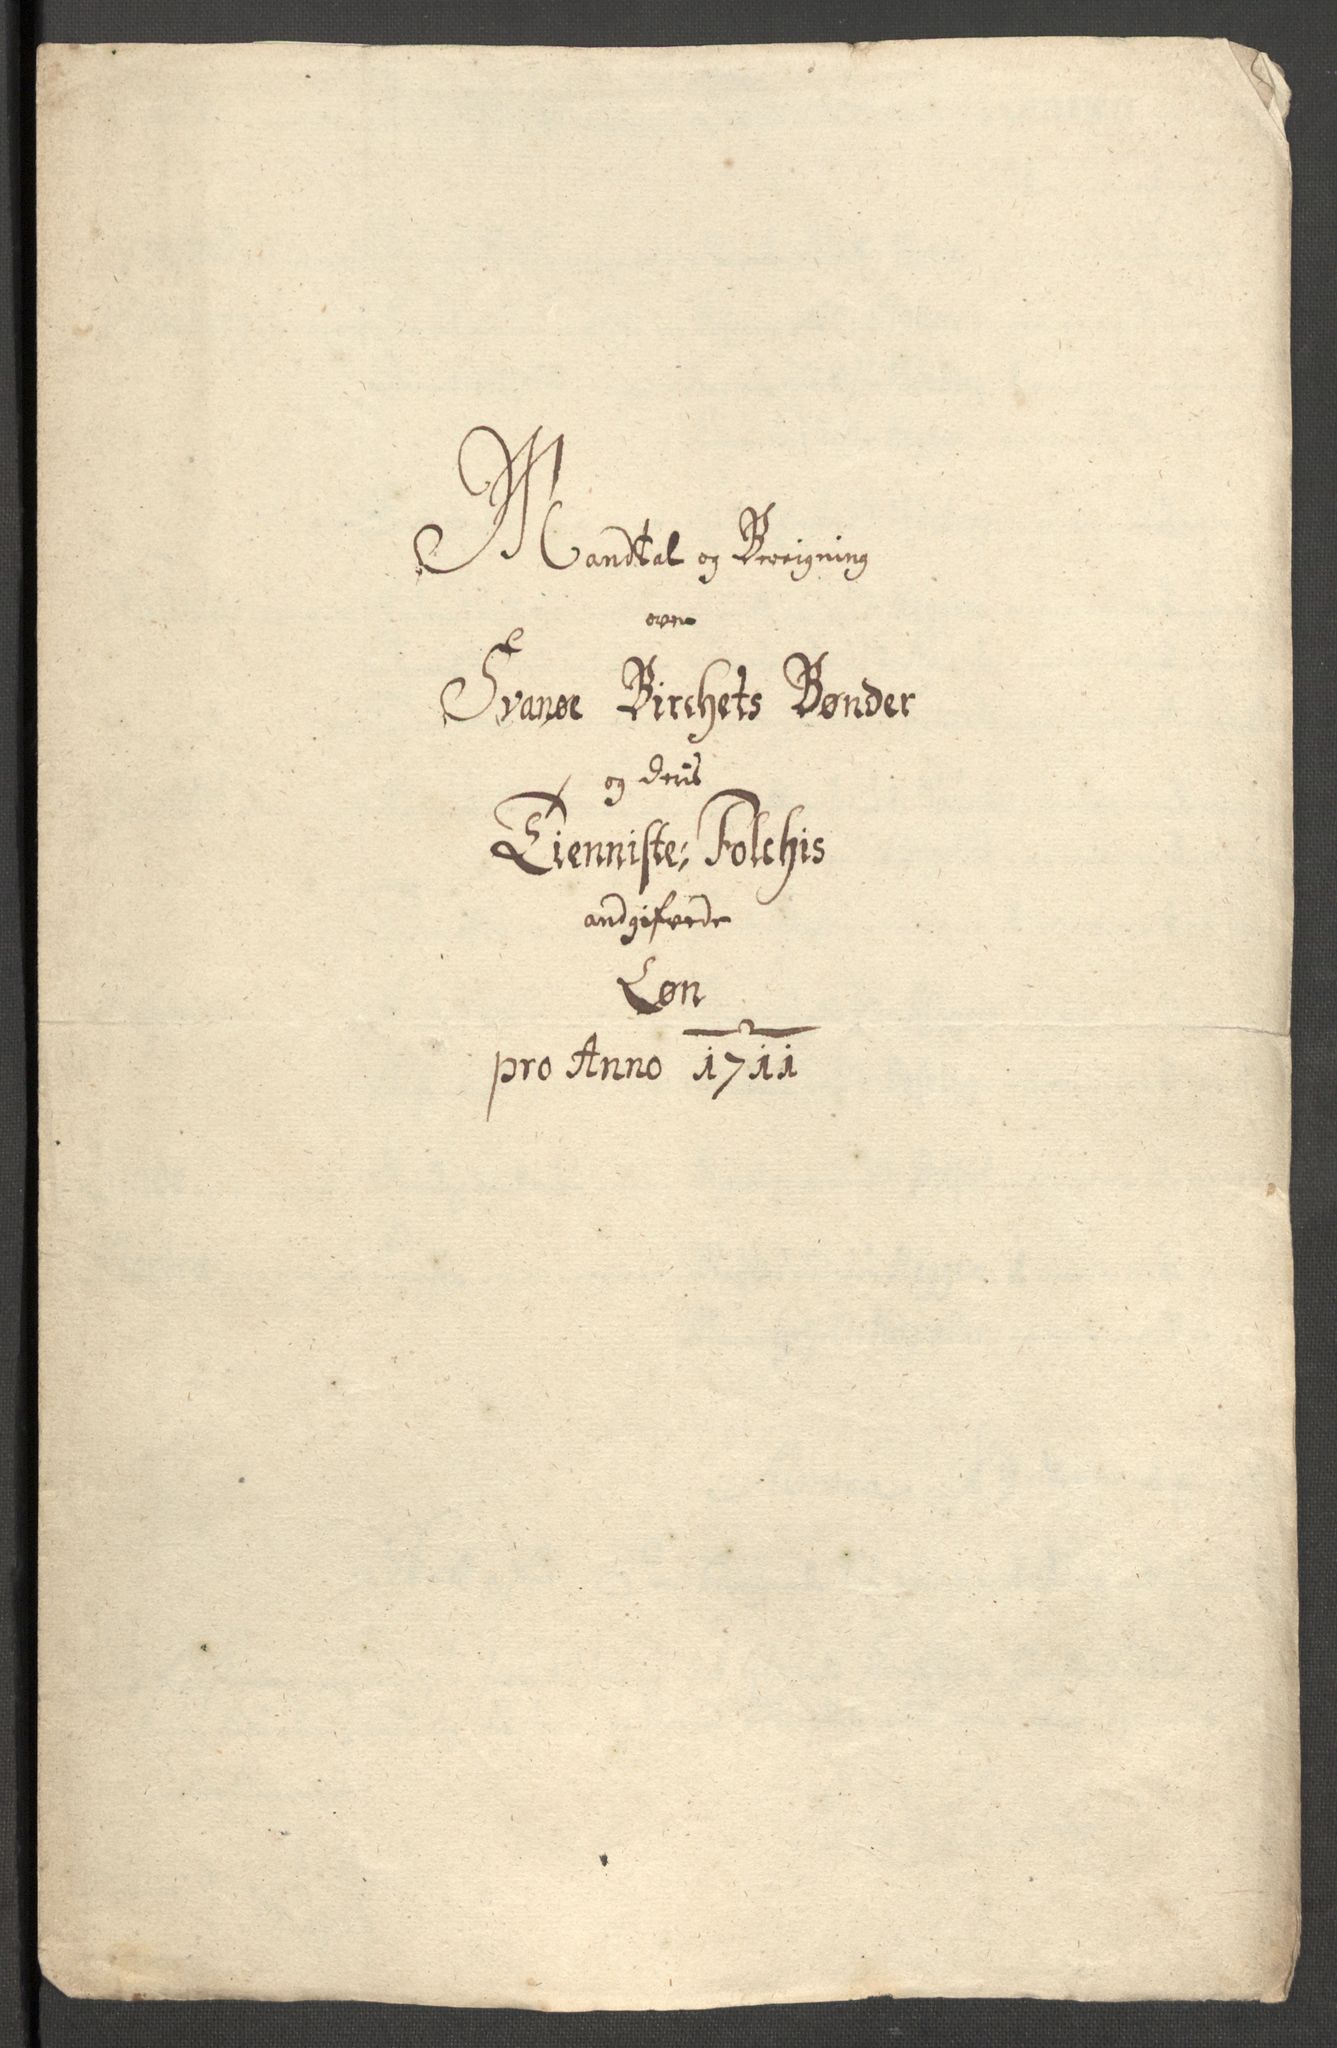 Mandtal og Bereigning
over
Svanøe Birchets Bønder
og deris
Tienniste, Folchis
andgifvede
Løn
pro Anno 1711